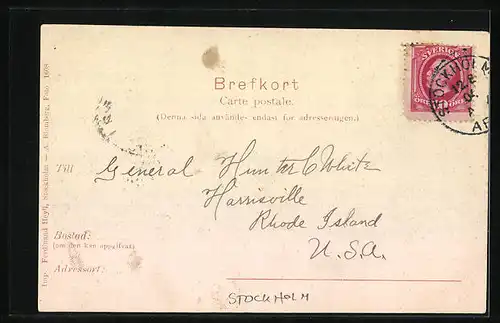 Brefkort
Carte postale.
(Denna sida användes endast för adresseringen.)
SVERIGE
ÖRE 10 ÖRE
STOCKHOLM
Till General Hunter C White
Harrisville
Rhode Island
U.S.A.
Bostad:
(om den kan uppgifvas)
Adressort:
STOCKHOLM
Imp. Ferdinand Hey'l, Stockholm – A. Blomberg, Foto